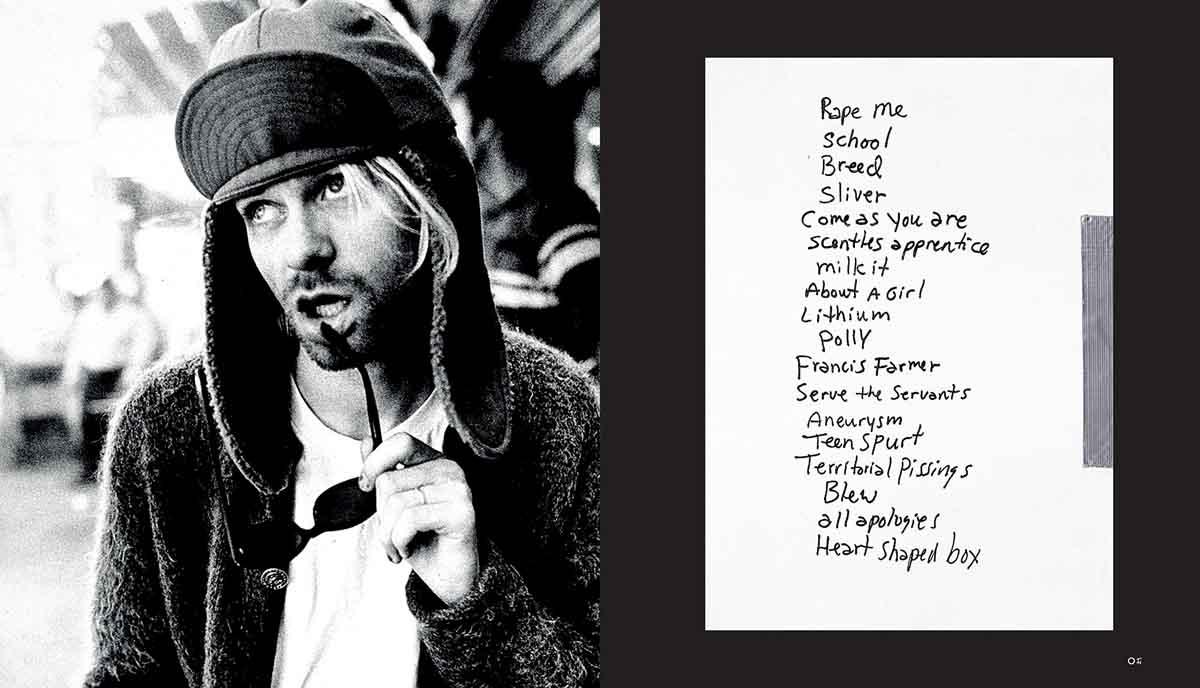 Rape me
School
Breed
Sliver
Come as you are
scentles apprentice
milk it
About A Girl
Lithium
Polly
Francis Farmer
Serve the Servants
Aneurysm
Teen Spurt
Territorial Pissings
Blew
all apologies
Heart shaped box